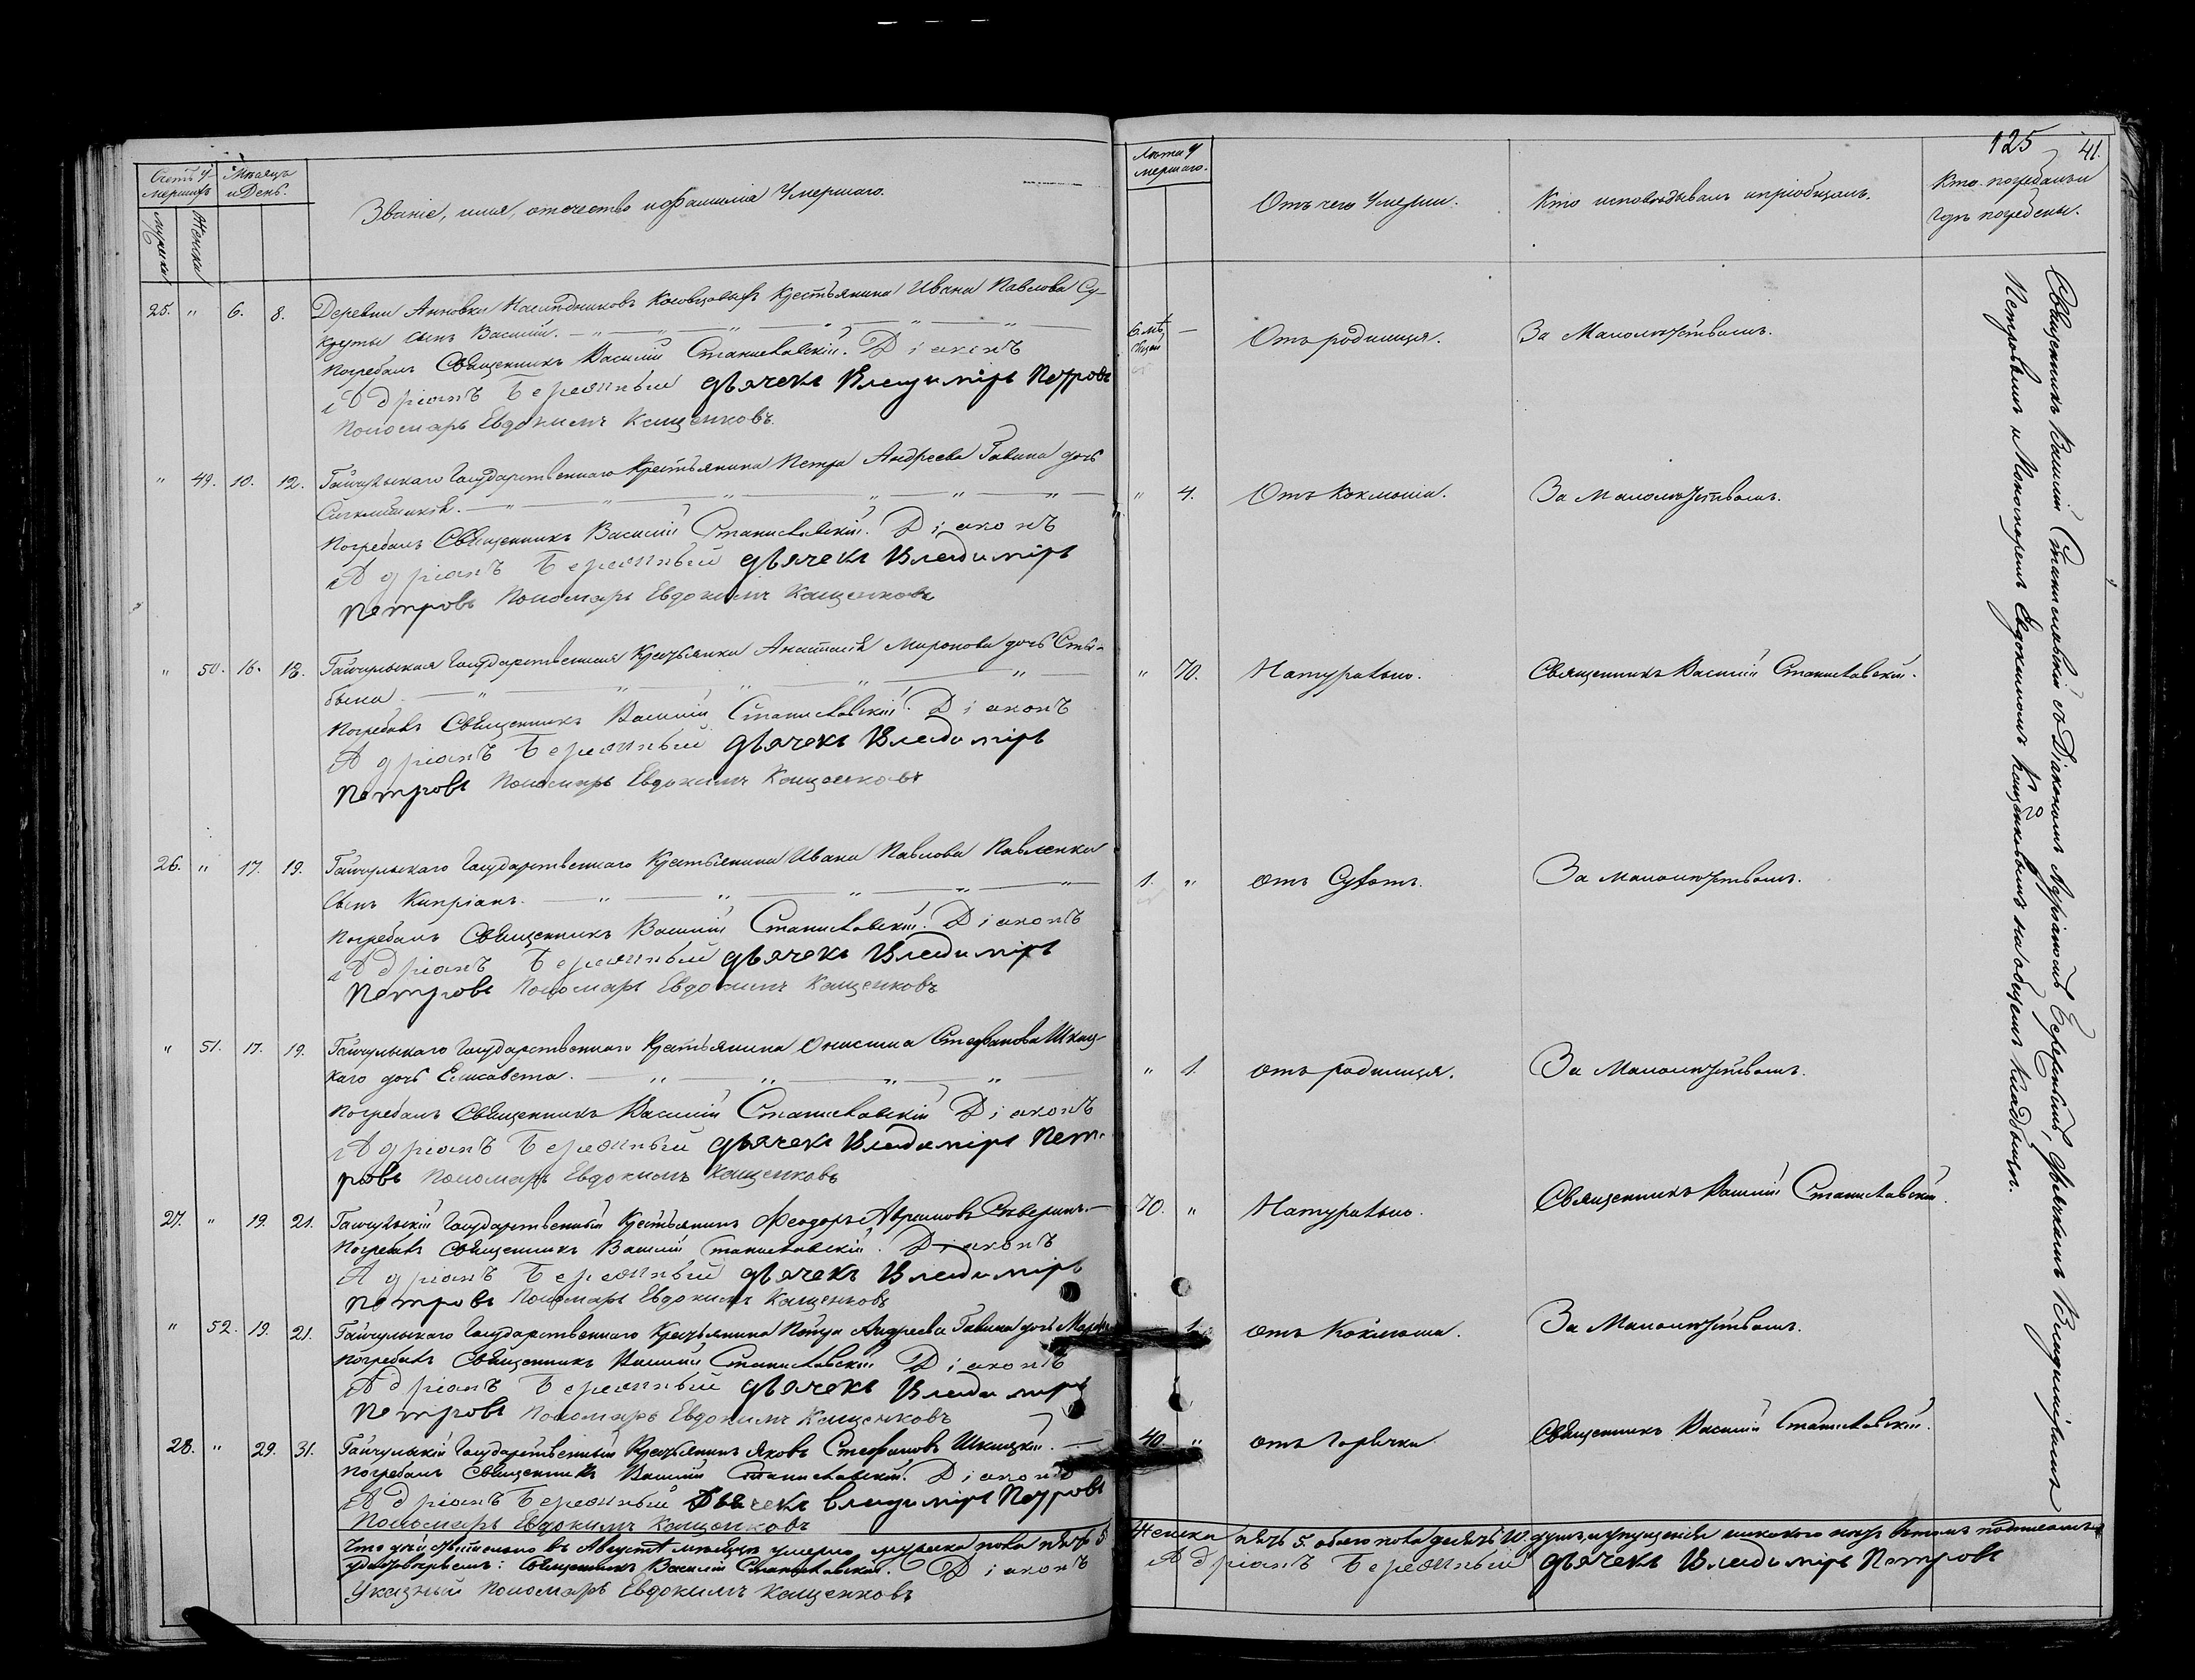 125 41.
Счетъ у-
мершихъ
Мѣсяцъ
и День.
Званіе, имя, отечество и фамилія Умершаго.
Лѣта У
мершаго.
Отъ чего Умерли.
Кто исповѣдывалъ и пріобщалъ.
Кто погребалъ и
гдѣ погребены.
Мужеска
Женска
25. " 6. 8. Деревни Анновки Наслѣдниковъ крестьянина Ивана Павлова Су-
круты сынъ Василій.
6. мѣ
сяцей
Отъ родимца.
За Малолѣтствомъ.
Погребалъ Священникъ Василій Станиславскій. Діаконъ
Адріанъ дьячекъ Владиміръ Петровъ
Пономарь Евдокимъ Кащенковъ.
" 49. 10. 12. Гайчульскаго Государственнаго Крестьянина Петра Андреева Гавина дочь
" 4. Отъ Коклюша. За Малолѣтствомъ.
Погребалъ Священникъ Василій Станиславскій. Діаконъ
Адріанъ дьячекъ Владиміръ
Петровъ Пономарь Евдокимъ Кащенковъ
" 50. 16. 18. Гайчульская Государственная Крестьянка Анастасія Миронова дочь
" 70. Натурально. Священникъ Василій Станиславскій.
Погребалъ Священникъ Василій Станиславскій. Діаконъ
Адріанъ дьячекъ Владиміръ
Петровъ Пономарь Евдокимъ Кащенковъ
26. " 17. 19. Гайчульскаго Государственнаго Крестьянина Ивана Павлова Павленка
сынъ Кипріанъ.
1. " отъ Сухотъ. За Малолѣтствомъ.
Погребалъ Священникъ Василій Станиславскій. Діаконъ
Адріанъ дьячекъ Владиміръ
Петровъ Пономарь Евдокимъ Кащенковъ
" 51. 17. 19. Гайчульскаго Государственнаго Крестьянина Онисима Стефанова Шкиц-
каго дочь Елисавета.
" 1. отъ родимца. За Малолѣтствомъ.
Погребалъ Священникъ Василій Станиславскій Діаконъ
Адріанъ дьячекъ Владиміръ Пет-
ровъ Пономарь Евдокимъ Кащенковъ
27. " 19. 21. Гайчульскій Государственный Крестьянинъ Феодоръ Аврамовъ Северинъ.
70. " Натурально. Священникъ Василій Станиславскій.
Погребалъ Священникъ Василій Станиславскій. Діаконъ
Адріанъ дьячекъ Владиміръ
Петровъ Пономарь Евдокимъ Кащенковъ
" 52. 19. 21. Гайчульскаго Государственнаго Крестьянина Петра Андреева Гавина дочь
1. отъ Коклюша. За Малолѣтствомъ.
Погребалъ Священникъ Василій Станиславскій Діаконъ
Адріанъ дьячекъ Владиміръ
Петровъ Пономарь Евдокимъ Кащенковъ
28. " 29. 31. Гайчульскій Государственный Крестьянинъ Яковъ Стефановъ Шкицкій.
40. " отъ Горячки Священникъ Василій Станиславскій.
Погребалъ Священникъ Василій Станиславскій. Діаконъ
Адріанъ Дьячекъ Владиміръ Петровъ
Пономарь Евдокимъ Кащенковъ
Что дѣйствительно въ Августѣ мѣсяцѣ умерло мужеска пола пять 5
Женска пять 5. обоего пола десять 10. душъ и упущенія никакого нѣтъ въ томъ подписомъ
удостовѣряемъ: Священникъ Василій Станиславскій. Діаконъ
Адріанъ дьячекъ Владиміръ Петровъ
Указный Пономарь Евдокимъ Кащенковъ
Священникъ Василій Станиславскій съ Діакономъ Адріаномъ дьячкомъ Владиміромъ
Петровымъ и Пономаремъ Евдокимомъ Кащенковымъ на общемъ кладбищѣ.